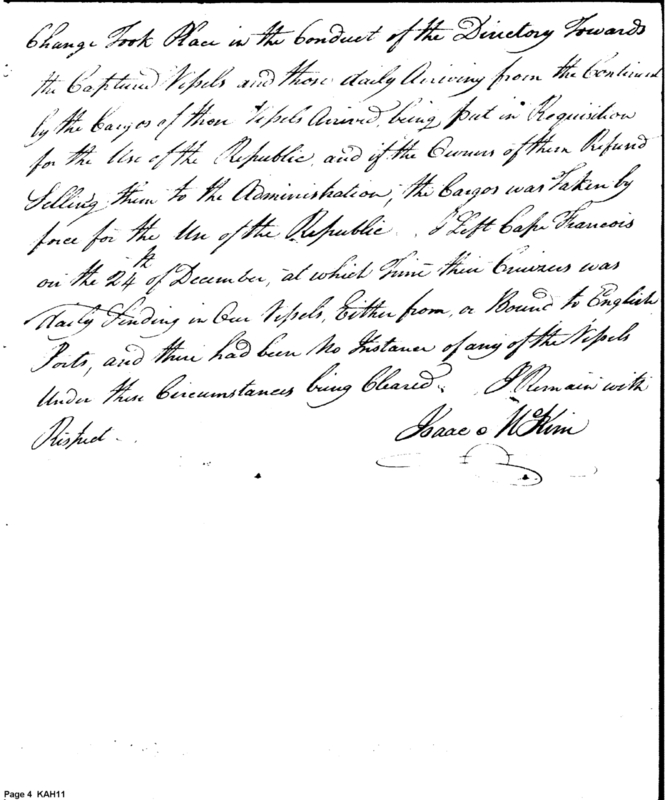 Change Took Place in the Conduct of the Directory Towards
the Captured Vessels and those daily Arriving from the Continent
by the Cargos of those Vessels Arrived, being put in Requisition
for the Use of the Republic, and if the Owners of them Refused
Selling them to the Administration, the Cargos was Taken by
force for the Use of the Republic. I Left Cape Francois
on the 24th of December, at which Time their Cruizers was
daily Sending in Our Vessels, Either from, or Bound to English
Ports, and there had been No Instance of any of the Vessels
Under these Circumstances being Cleared. I Remain with
Respect.
Isaac McKim
Page 4 KAH11